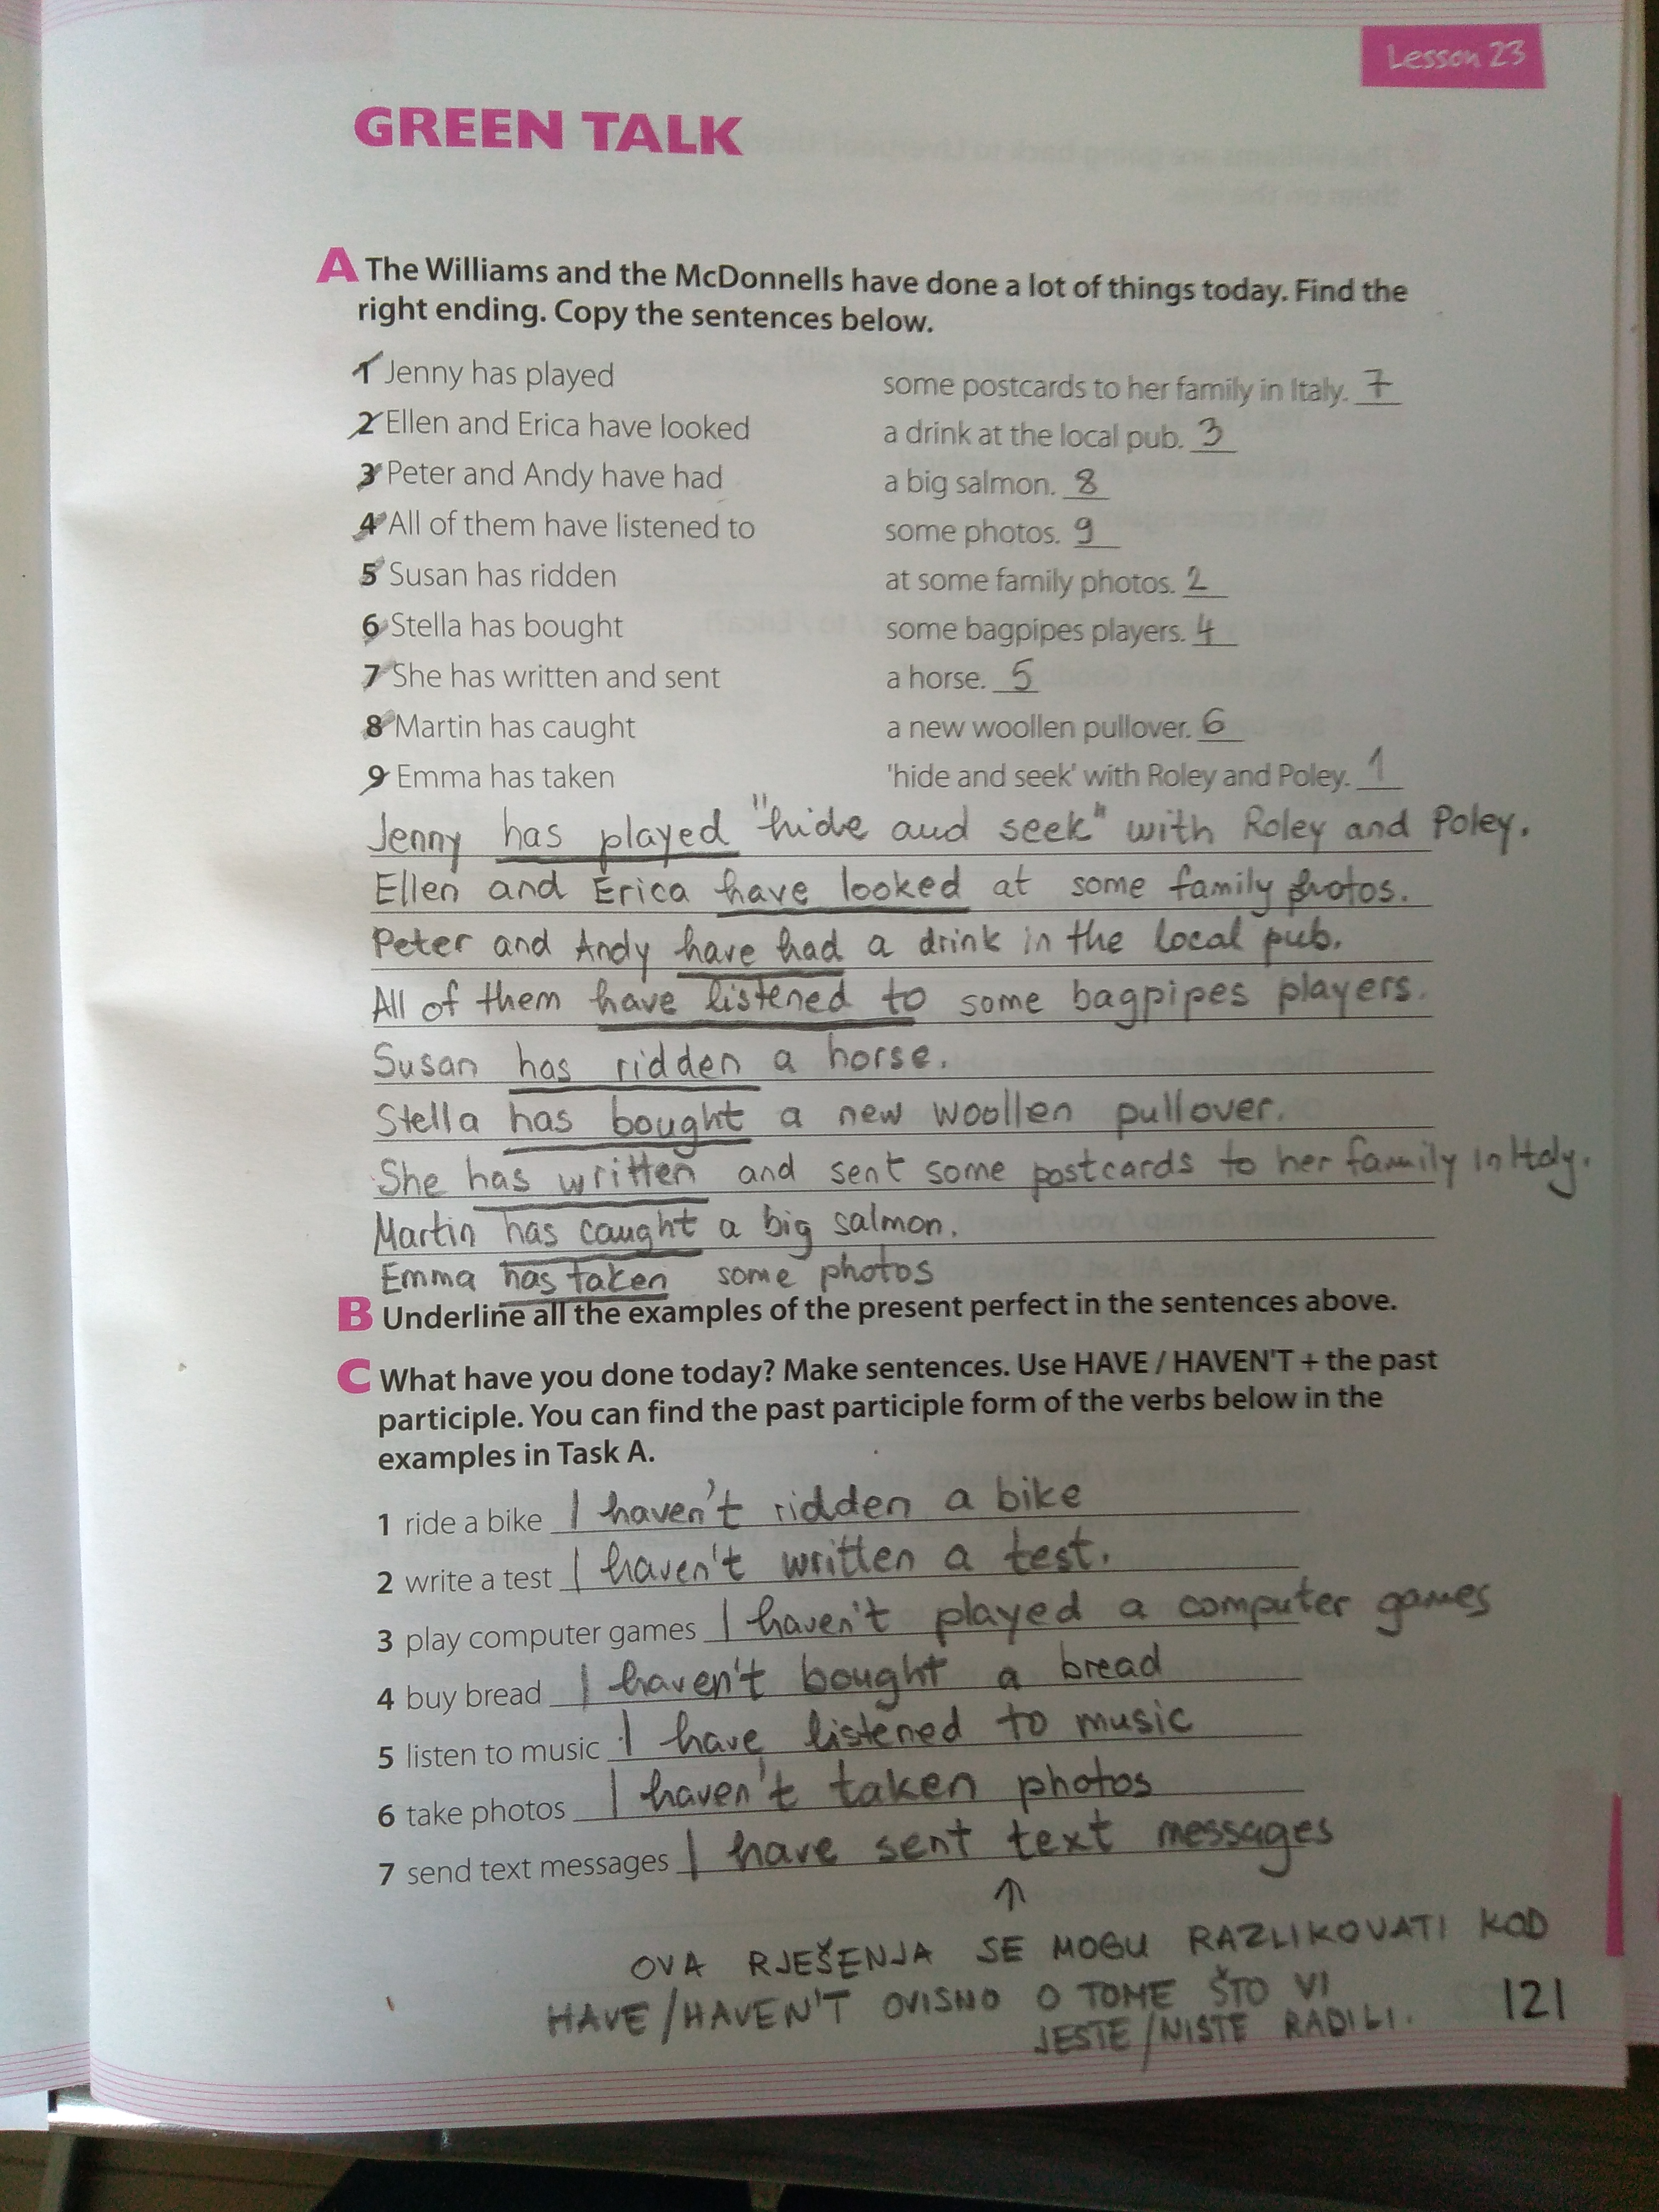 Lesson 23
GREEN TALK
A The Williams and the McDonnells have done a lot of things today. Find the
right ending. Copy the sentences below.
1 Jenny has played some postcards to her family in Italy. 7
2 Ellen and Erica have looked a drink at the local pub. 3
3 Peter and Andy have had a big salmon. 8
4 All of them have listened to some photos. 9
5 Susan has ridden at some family photos. 2
6 Stella has bought some bagpipes players. 4
7 She has written and sent a horse. 5
8 Martin has caught a new woollen pullover. 6
9 Emma has taken 'hide and seek' with Roley and Poley. 1
Jenny has played "hide and seek" with Roley and Poley.
Ellen and Erica have looked at some family photos.
Peter and Andy have had a drink in the local pub.
All of them have listened to some bagpipes players.
Susan has ridden a horse.
Stella has bought a new woollen pullover.
She has written and sent some postcards to her family in Italy.
Martin has caught a big salmon.
Emma has taken some photos
B Underline all the examples of the present perfect in the sentences above.
C What have you done today? Make sentences. Use HAVE / HAVEN'T + the past
participle. You can find the past participle form of the verbs below in the
examples in Task A.
1 ride a bike I haven't ridden a bike
2 write a test I haven't written a test.
3 play computer games I haven't played a computer games
4 buy bread I haven't bought a bread
5 listen to music I have listened to music
6 take photos I haven't taken photos
7 send text messages I have sent text messages
OVA RJEŠENJA SE MOGU RAZLIKOVATI KOD
HAVE/HAVEN'T OVISNO O TOME ŠTO VI
JESTE/NISTE RADILI.
121